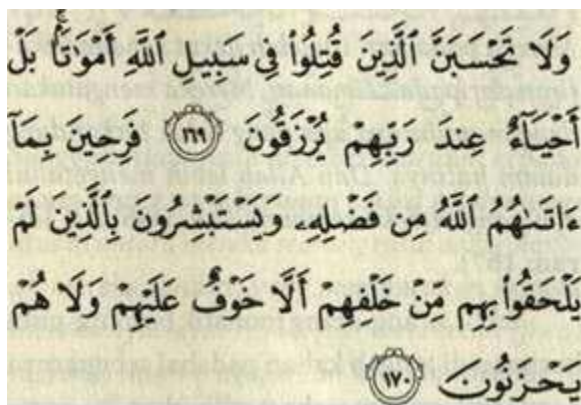 وَلَا تَحْسَبَنَّ الَّذِينَ قُتِلُوا۟ فِى سَبِيلِ اللَّهِ أَمْوَٰتًۢا بَلْ
أَحْيَآءٌ عِندَ رَبِّهِمْ يُرْزَقُونَ ١٦٩ فَرِحِينَ بِمَآ
ءَاتَىٰهُمُ اللَّهُ مِن فَضْلِهِۦ وَيَسْتَبْشِرُونَ بِالَّذِينَ لَمْ
يَلْحَقُوا۟ بِهِم مِّنْ خَلْفِهِمْ أَلَّا خَوْفٌ عَلَيْهِمْ وَلَا هُمْ
يَحْزَنُونَ ١٧٠